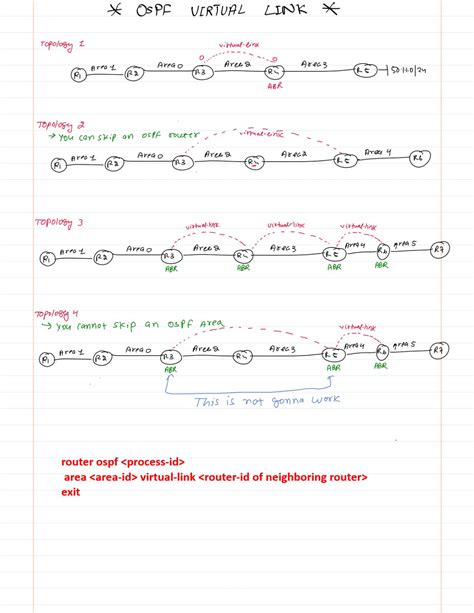 * OSPF VIRTUAL LINK *
Topology 1
virtual-link
R1 Area 1 R2 Area 0 R3 Area 2 R4 Area 3 R5
ABR
Topology 2
→ You can skip an OSPF router
R1 Area 1 R2 Area 0 R3 Area 2 Area 2 R5 Area 4
Topology 3
virtual-link virtual-link virtual-link
R1 Area 1 R2 Area 0 R3 Area 2 R4 Area 3 R5 Area 4 R6 Area 5 R7
ABR ABR ABR ABR
Topology 4
→ You cannot skip an OSPF Area
virtual-link
R1 Area 1 R2 Area 0 R3 Area 2 R4 Area 3 R5 Area 4 R6 Area 5 R7
ABR ABR ABR
This is not gonna work
router ospf <process-id>
area <area-id> virtual-link <router-id of neighboring router>
exit